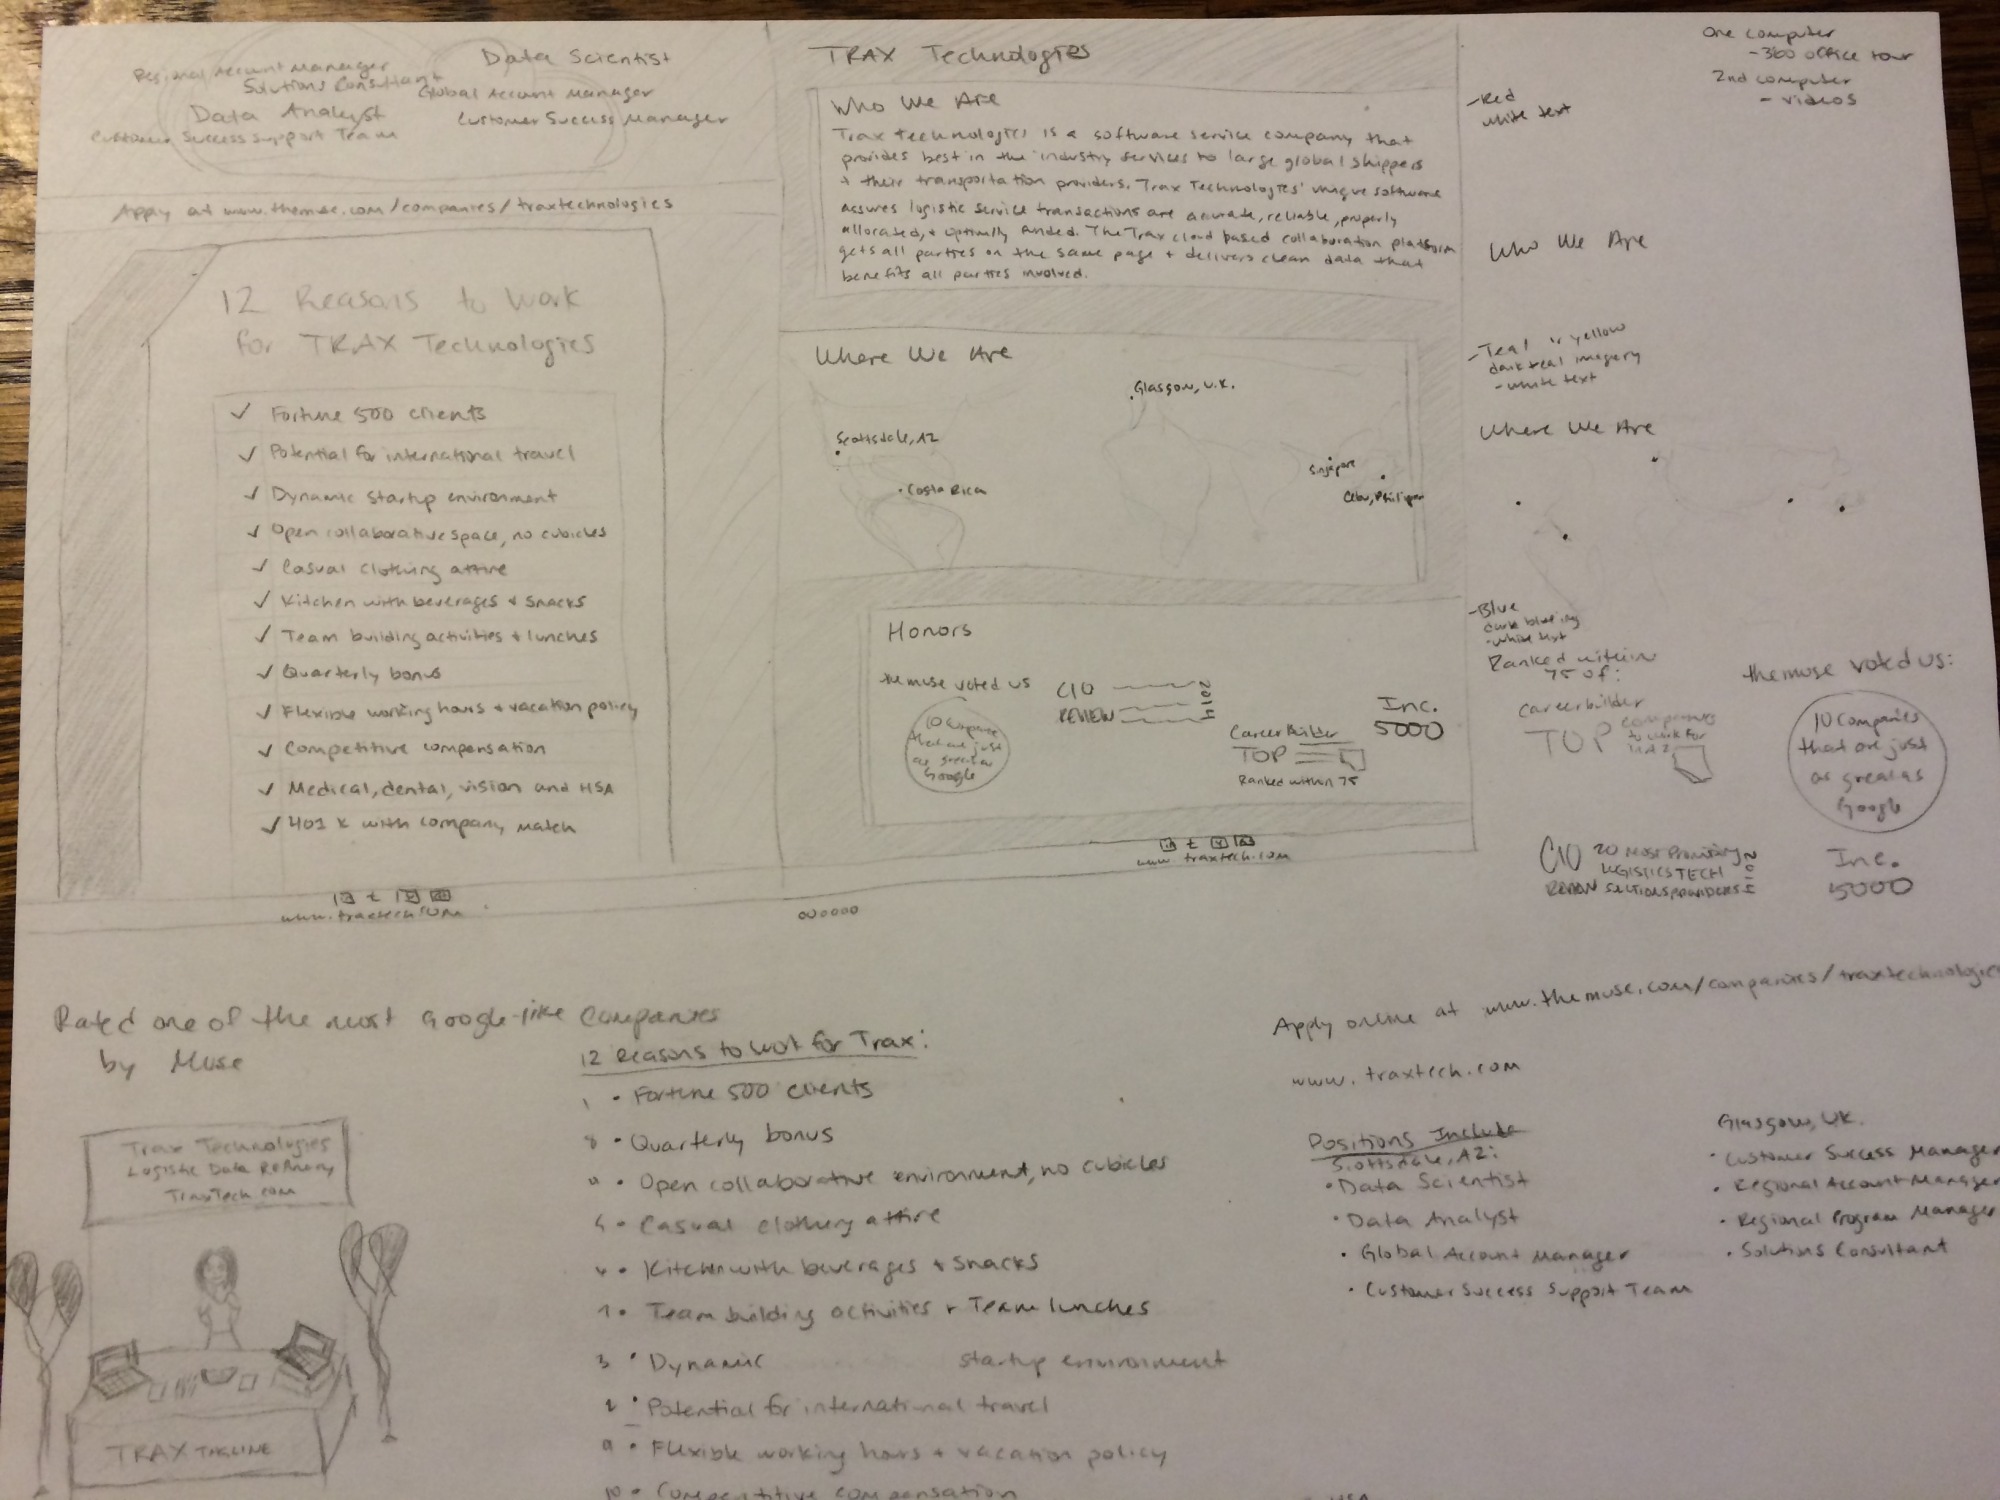 Data Scientist
Regional Account Manager
Solutions Consultant
Global Account Manager
Data Analyst
Customer Success Manager
Customer Success Support Team
Apply at www.themuse.com/companies/traxtechnologies
12 Reasons to Work
for TRAX Technologies
✓ Fortune 500 clients
✓ Potential for international travel
✓ Dynamic startup environment
✓ Open collaborative space, no cubicles
✓ Casual clothing attire
✓ Kitchen with beverages + snacks
✓ Team building activities + lunches
✓ Quarterly bonus
✓ Flexible working hours + vacation policy
✓ Competitive compensation
✓ Medical, dental, vision and HSA
✓ 401 K with company match
in t
www.traxtech.com
TRAX Technologies
Who We Are
Trax Technologies is a software service company that
provides best in the industry services to large global shippers
+ their transportation providers. Trax Technologies' unique software
assures logistic service transactions are accurate, reliable, properly
allocated, + optimally funded. The Trax cloud based collaboration platform
gets all parties on the same page + delivers clean data that
benefits all parties involved.
Where We Are
Glasgow, U.K.
Scottsdale, AZ
Singapore
Costa Rica
Cebu, Philippen
Honors
the muse voted us
10 Companies
that are just
as great as
Google
CIO
REVIEW
2014
CareerBuilder
TOP
Ranked within 75
Inc.
5000
in t
www.traxtech.com
000000
One computer
- 360 office tour
2nd computer
- videos
- Red
white text
Who We Are
- Teal n yellow
dark teal imagery
- white text
Where We Are
- Blue
dark blue img
- white text
Ranked within
75 of:
careerbuilder
TOP companies
to work for
in AZ
the muse voted us:
10 Companies
that are just
as great as
Google
CIO 20 Most Promising
LOGISTICS TECH
REVIEW SOLUTIONS PROVIDERS
2014
Inc.
5000
Rated one of the most Google-like Companies
by Muse
Trax Technologies
Logistic Data Refinery
TraxTech.com
TRAX TAGLINE
12 Reasons to Work for Trax:
1 • Fortune 500 clients
8 • Quarterly bonus
• Open collaborative environment, no cubicles
5 • Casual clothing attire
• Kitchen with beverages + snacks
7 • Team building activities + Team lunches
3 • Dynamic startup environment
2 • Potential for international travel
9 • Flexible working hours + vacation policy
10 • Competitive compensation
HSA
Apply online at www.themuse.com/companies/traxtechnologies
www.traxtech.com
Positions Include
Scottsdale, AZ:
• Data Scientist
• Data Analyst
• Global Account Manager
• Customer Success Support Team
Glasgow, UK.
• Customer Success Manager
• Regional Account Manager
• Regional Program Manager
• Solutions Consultant